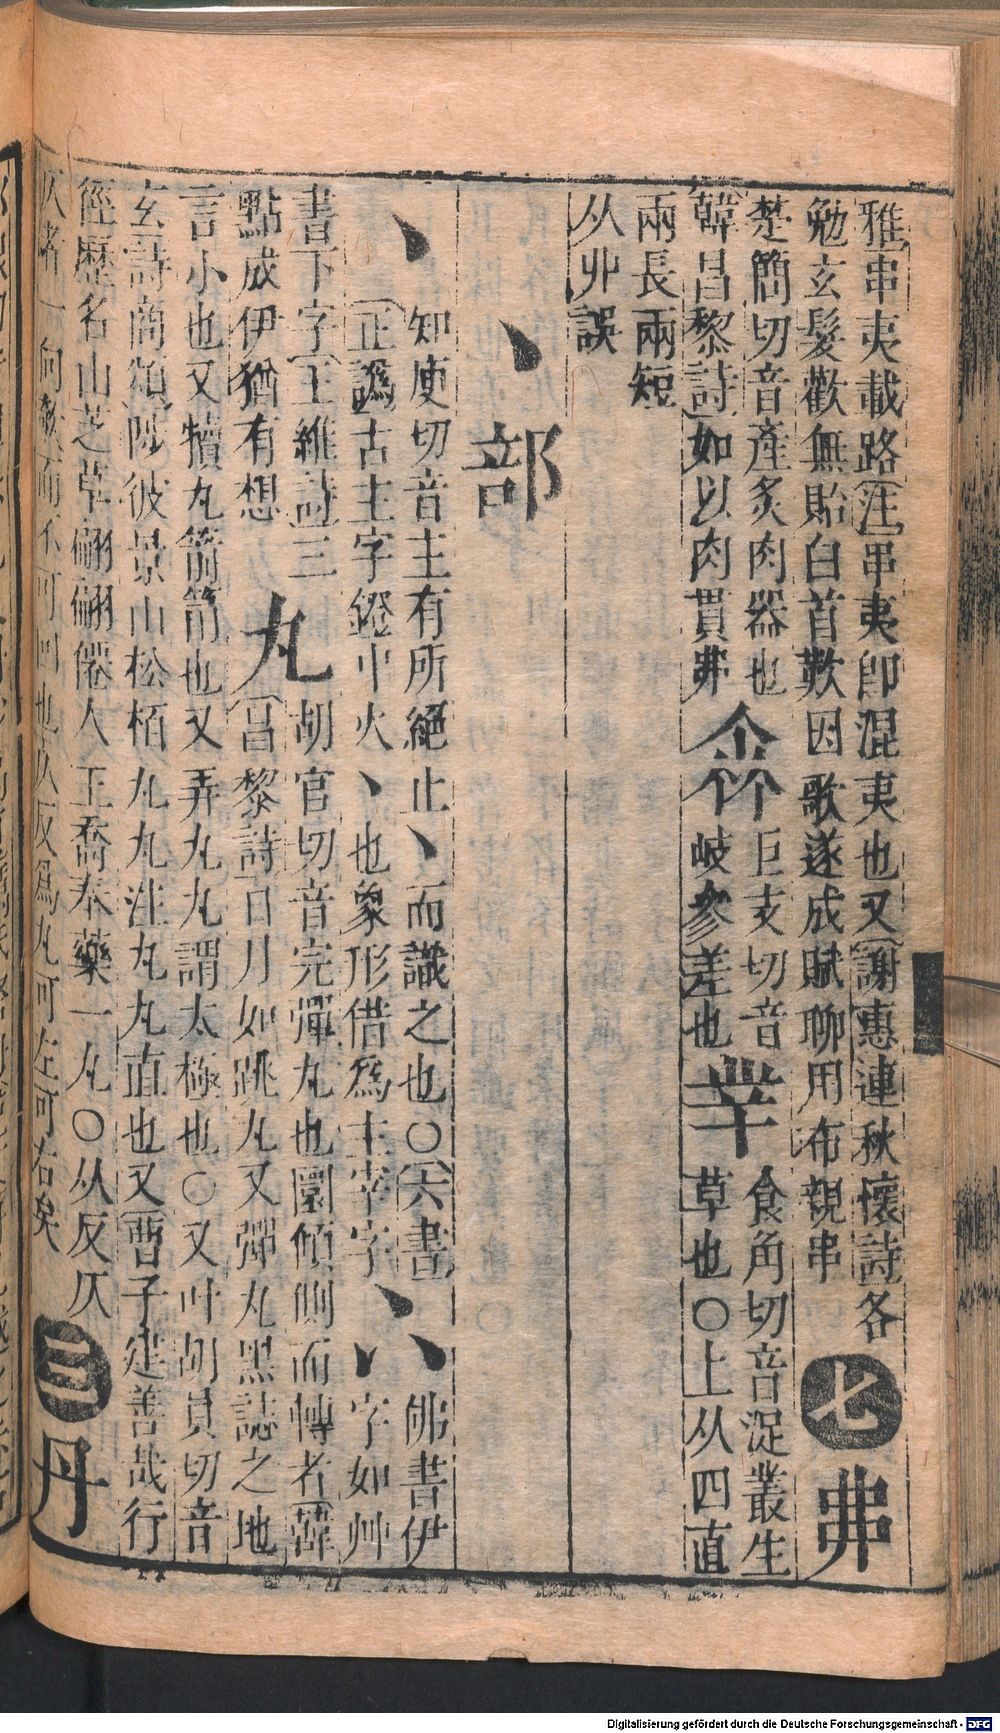 雅串夷載路注串夷即混夷也又謝惠連秋懷詩各
勉玄髮歡無貽白首歎因歌遂成賦聊用布親串 七 丳
楚簡切音產炙肉器也 巨支切音 食角切音浞叢生
韓昌黎詩如以肉貫丳 㒰 岐參差也 丵 草也〇上从四直
兩長兩短
从丱誤
丶部
丶 知庾切音主有所絕止丶而識之也〇六書 佛書伊
正譌古主字鐙中火丶也象形借爲主宰字 字如艸
書下字王維詩三 胡官切音完彈丸也圜傾側而轉者韓
點成伊猶有想 丸 昌黎詩日月如跳丸又彈丸黑誌之地
言小也又犢丸箭箙也又弄丸丸謂太極也〇又叶胡員切音
玄詩商頌陟彼景山松栢丸丸注丸丸直也又曹子建善哉行
徑歷名山芝草翩翩僊人王喬奉藥一丸〇从反仄 三 丹
仄者一向 而不可回也仄反爲丸可左可右矣
Digitalisierung gefördert durch die Deutsche Forschungsgemeinschaft - DFG